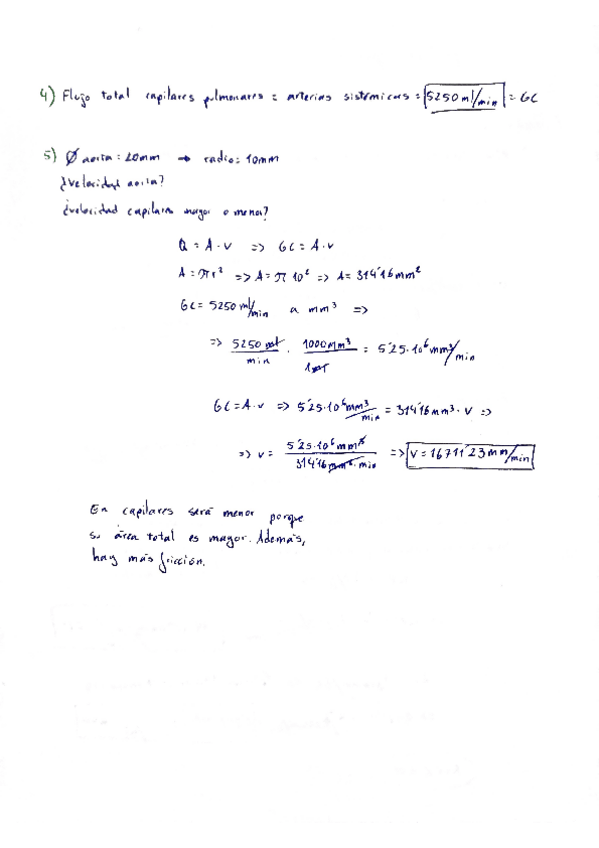 4) Flujo total capilares pulmonares = arterias sistémicas = 5250 ml/min = GC
5) Ø aorta: 20mm → radio: 10mm
¿Velocidad aorta?
¿velocidad capilares mayor o menor?
Q = A·v => GC = A·v
A = πr² => A = π 10² => A = 314'16 mm²
GC = 5250 ml/min a mm³ =>
=> 5250 ml / min · 1000 mm³ / 1 ml = 5'25·10⁶ mm³/min
GC = A·v => 5'25·10⁶ mm³/min = 314'16 mm²· v =>
=> v = 5'25·10⁶ mm³ / 314'16 mm²·min => v = 16711'23 mm/min
En capilares será menor porque
su área total es mayor. Además,
hay más fricción.